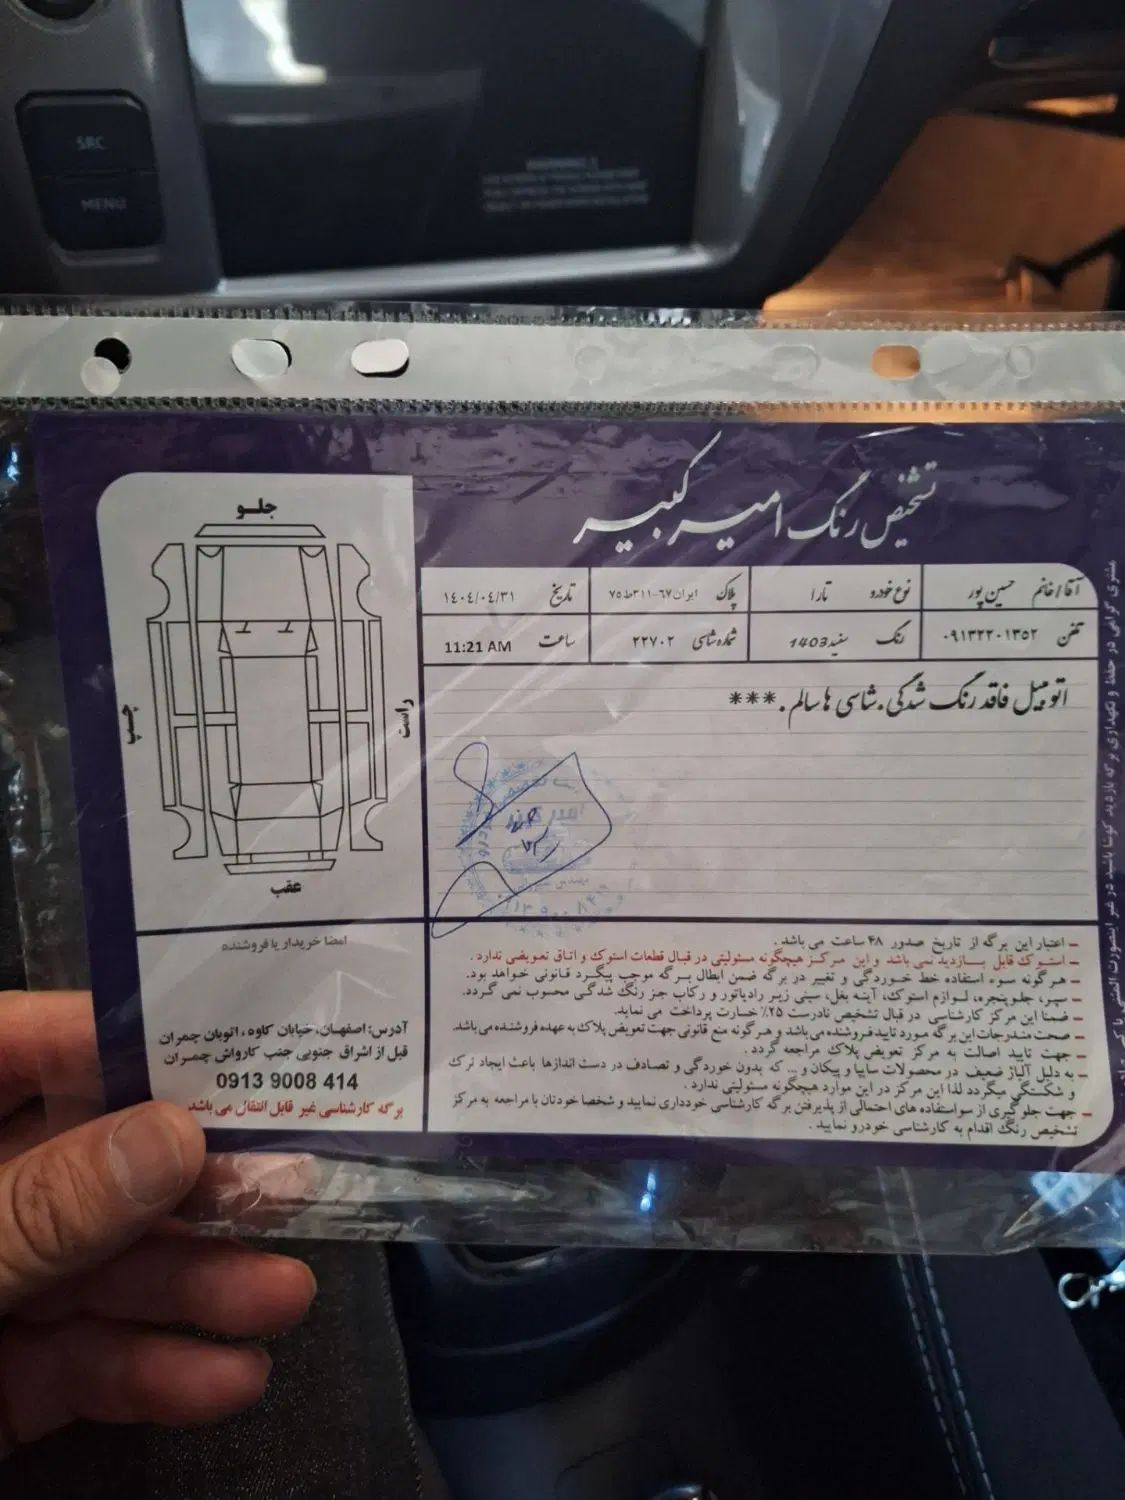 SRC
MENU
WARNING !
تشخیص رنگ امیرکبیر
آقا/خانم حسین پور
نوع خودرو تارا
پلاک ایران ۶۷-۳۱۱ط۷۵
تاریخ ۱۴۰۴/۰۴/۳۱
تلفن ۰۹۱۳۲۲۰۱۳۵۲
رنگ سفید 1403
شماره شاسی ۲۲۷۰۲
ساعت 11:21 AM
اتومبیل فاقد رنگ شدگی.شاسی ها سالم.***
جلو
چپ
راست
عقب
امضا خریدار یا فروشنده
آدرس: اصفهان، خیابان کاوه، اتوبان چمران
قبل از اشراق جنوبی جنب کارواش چمران
0913 9008 414
برگه کارشناسی غیر قابل انتقال می باشد
– اعتبار این برگه از تاریخ صدور ۴۸ ساعت می باشد .
– استوک قابل بازدید نمی باشد و این مرکز هیچگونه مسئولیتی در قبال قطعات استوک و اتاق تعویضی ندارد .
– هرگونه سوء استفاده خط خوردگی و تغییر در برگه ضمن ابطال برگه موجب پیگرد قانونی خواهد بود.
– سپر، جلوپنجره، لوازم استوک، آینه بغل، سینی زیر رادیاتور و رکاب جز رنگ شدگی محسوب نمی گردد.
– ضمنا این مرکز کارشناسی در قبال تشخیص نادرست ۲۵٪ خسارت پرداخت می نماید.
– صحت مندرجات این برگه مورد تایید فروشنده می باشد و هرگونه منع قانونی جهت تعویض پلاک به عهده فروشنده می باشد.
– جهت تایید اصالت به مرکز تعویض پلاک مراجعه گردد .
– به دلیل آلیاژ ضعیف در محصولات سایپا و پیکان و... که بدون خوردگی و تصادف در دست اندازها باعث ایجاد ترک
و شکستگی میگردد لذا این مرکز در این موارد هیچگونه مسئولیتی ندارد .
– جهت جلوگیری از سواستفاده های احتمالی از پذیرفتن برگه کارشناسی خودداری نمایید و شخصا خودتان با مراجعه به مرکز
تشخیص رنگ اقدام به کارشناسی خودرو نمایید .
مشتری گرامی در حفظ و نگهداری برگه بازدید کوشا باشید در غیر اینصورت المثنی با